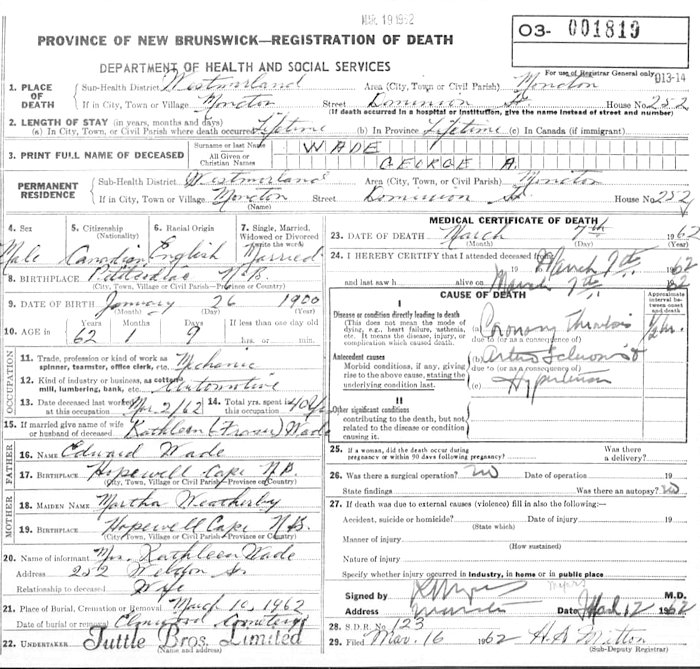 MAR 19 1962
03- 001819
PROVINCE OF NEW BRUNSWICK—REGISTRATION OF DEATH
DEPARTMENT OF HEALTH AND SOCIAL SERVICES
For use of Registrar General only
013-14
1. PLACE OF DEATH
Sub-Health District Westmorland Area (City, Town or Civil Parish) Moncton
If in City, Town or Village Moncton Street Dominion St. House No. 252
(If death occurred in a hospital or institution, give the name instead of street and number)
2. LENGTH OF STAY (in years, months and days)
(a) In City, Town or Civil Parish where death occurred Lifetime (b) In Province Lifetime (c) In Canada (if immigrant)
3. PRINT FULL NAME OF DECEASED
Surname or last Name WADE
All Given or Christian Names GEORGE A.
PERMANENT RESIDENCE
Sub-Health District Westmorland Area (City, Town or Civil Parish) Moncton
If in City, Town or Village Moncton Street Dominion St. House No. 252
(Name)
4. Sex 5. Citizenship (Nationality) 6. Racial Origin 7. Single, Married, Widowed or Divorced (write the word)
Male Canadian English Married
8. BIRTHPLACE N.B.
(City, Town, Village or Civil Parish—Province or Country)
9. DATE OF BIRTH January 26 1900
(Month) (Day) (Year)
10. AGE in Years Months Days If less than one day old
62 1 9 hrs. or min.
OCCUPATION
11. Trade, profession or kind of work as spinner, teamster, office clerk, etc. Mechanic
12. Kind of industry or business, as cotton mill, lumbering, bank, etc. Automotive
13. Date deceased last worked at this occupation Mar. 2/62 14. Total yrs. spent in this occupation 40
15. If married give name of wife or husband of deceased Kathleen (Fraser) Wade
FATHER
16. NAME Edward Wade
17. BIRTHPLACE Hopewell Cape N.B.
(City, Town, Village or Civil Parish—Province or Country)
MOTHER
18. MAIDEN NAME Martha Weatherby
19. BIRTHPLACE Hopewell Cape N.B.
(City, Town, Village or Civil Parish—Province or Country)
20. Name of informant Mrs. Kathleen Wade
Address 252 St.
Relationship to deceased Wife
21. Place of Burial, Cremation or Removal March 10, 1962
Date of burial or removal Elmwood Cemetery
22. UNDERTAKER Tuttle Bros. Limited
(Name and address)
MEDICAL CERTIFICATE OF DEATH
23. DATE OF DEATH March 7th 1962
(Month) (Day) (Year)
24. I HEREBY CERTIFY that I attended deceased from
March 7th 1962
and last saw h alive on March 7th 62
CAUSE OF DEATH
Approximate interval between onset and death
I
Disease or condition directly leading to death
(This does not mean the mode of dying, e.g., heart failure, asthenia, etc. It means the disease, injury, or complication which caused death.
(a) Coronary
due to (or as a consequence of)
Antecedent causes
Morbid conditions, if any, giving rise to the above cause, stating the underlying condition last.
(b)
due to (or as a consequence of)
(c) Hypertension
II
Other significant conditions
contributing to the death, but not related to the disease or condition causing it.
25. If a woman, did the death occur during pregnancy or within 90 days following pregnancy? Was there a delivery?
26. Was there a surgical operation? no Date of operation 19
State findings Was there an autopsy? no
27. If death was due to external causes (violence) fill in also the following:—
Accident, suicide or homicide? Date of injury 19
(State which)
Manner of injury
(How sustained)
Nature of injury
Specify whether injury occurred in industry, in home or in public place
Myers
Signed by M.D.
Address Moncton Date March 12 1962
28. S.D.R. No. 123
29. Filed Mar. 16 1962 H.S. Mitton
(Sub-Deputy Registrar)